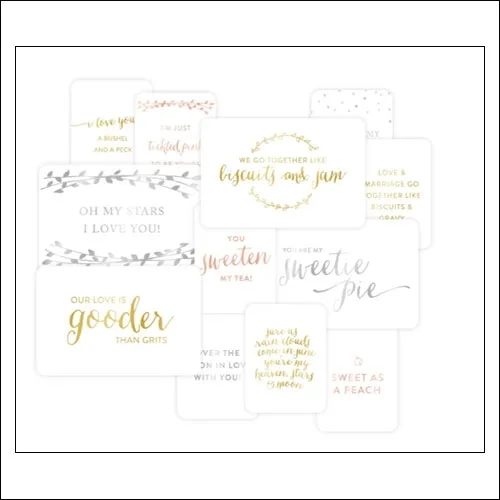 i love you
A BUSHEL
AND A PECK
I'M JUST
tickled pink
WE GO TOGETHER LIKE
biscuits and jam
LOVE &
MARRIAGE GO
TOGETHER LIKE
BISCUITS &
GRAVY
OH MY STARS
I LOVE YOU!
YOU
sweeten
MY TEA!
YOU ARE MY
sweetie
pie
OUR LOVE IS
gooder
THAN GRITS
OVER THE
IN LOVE
WITH YOU!
sure as
rain clouds
come in june
you're my
heaven, stars
& moon
SWEET AS
A PEACH